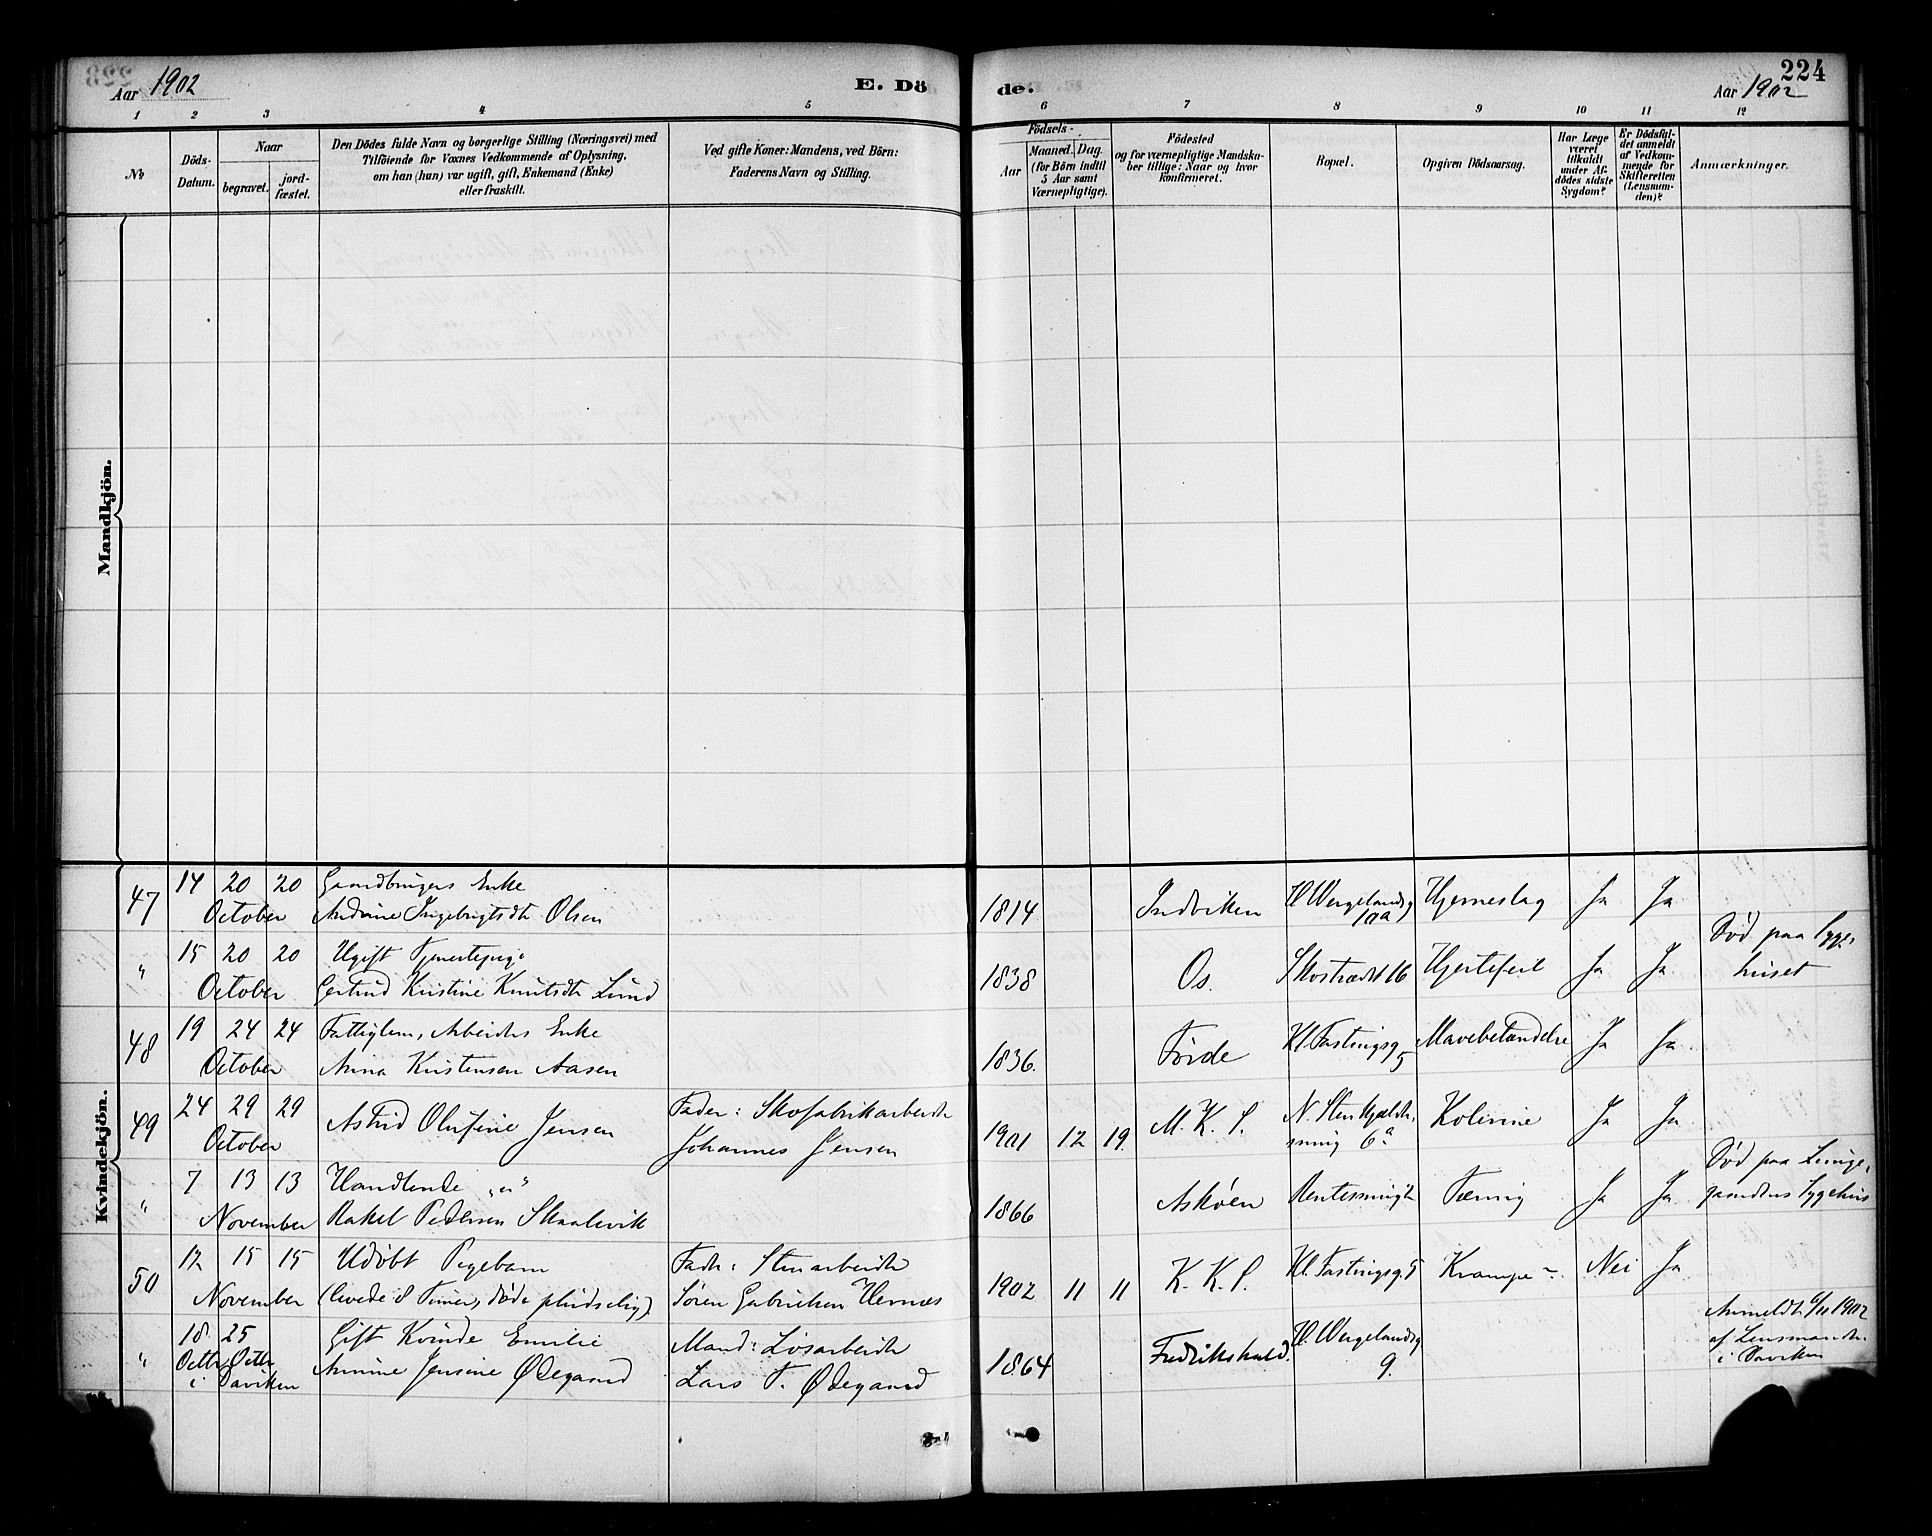 Aar 1902
E. Dö
de.
Aar 1902
224
1 2 3 4 5 6 7 8 9 10 11 12
No
Döds-
Datum.
Naar
begravet.
jord-
fæstet.
Den Dödes fulde Navn og borgerlige Stilling (Næringsvei) med
Tilföiende for Voxnes Vedkommende af Oplysning,
om han (hun) var ugift, gift, Enkemand (Enke)
eller fraskilt.
Ved gifte Koner: Mandens, ved Börn:
Faderens Navn og Stilling.
Födsels-
Aar
Maaned. Dag.
(for Börn indtil
5 Aar samt
Værnepligtige).
Födested
og for værnepligtige Mandska-
ber tillige: Naar og hvor
konfirmeret.
Bopæl.
Opgiven Dödsaarsag.
Har Læge
været
tilkaldt
under Af-
dödes sidste
Sygdom?
Er Dödsfal-
det anmeldt
af Vedkom-
mende for
Skifteretten
(Lensman-
den)?
Anmærkninger.
Mandkjön.
Kvindekjön.
47 14 20 20 Gaardbrugers Enke
October Andrine Ingebrigtsdtr Olsen 1814 Indviken H Wergelandsg 10a Hjerneslag Ja Ja
" 15 20 20 Ugift Tjenestepige
October Gertrud Kristine Knutsdtr Lund 1838 Os. Skostrædet 16 Hjertefeil Ja Ja Død paa Syge-
huset
48 19 24 24 Fattiglem, Arbeiders Enke
October Anna Kristensen Aasen 1836. Förde Kl. Fastingsg 5 Mavebetændelse Ja Ja
49 24 29 29 Astrid Olufine Jensen Fader: Skofabrikarbeider
October Johannes Jensen 1901 12 19. M. K. S. N. Stenkjælder-
smug 6a Kolerine Ja Ja
" 7 13 13 Handlende "u"
November Rakel Pedersen Skaalevik 1866 Askøen Tæring Ja Ja Død paa Lunge-
gaardens Sygehus
50 12 15 15 Udøbt Pigebarn Fader: Stenarbeider
November (levede 8 Timer, døde pludselig) Søren Gabrielsen Hernæs 1902 11 11 K. K. S. Kl. Fastingsg. 5 Krampe Nei Ja
" 18 25 Gift Kvinde Emilie Mand: Løsarbeider
Octbr Octbr Annine Jensine Ødegaard Lars T. Ødegaard 1864 Fredrikshald. H. Wergelandsg 9. Anmeldt 6/11 1902
i Daviken af Lensmanden
i Daviken